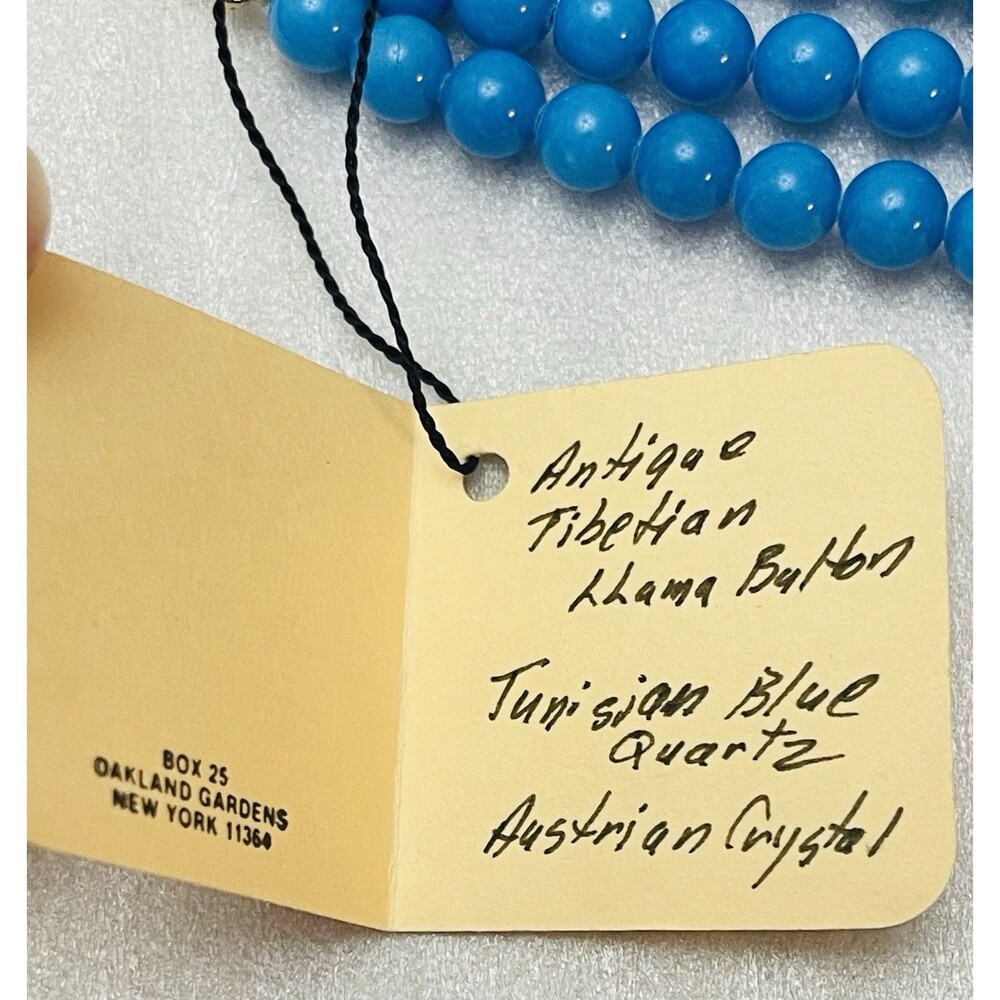 BOX 25
OAKLAND GARDENS
NEW YORK 11364
Antique
Tibetian
LLama Button
Tunisian Blue
Quartz
Austrian Crystal